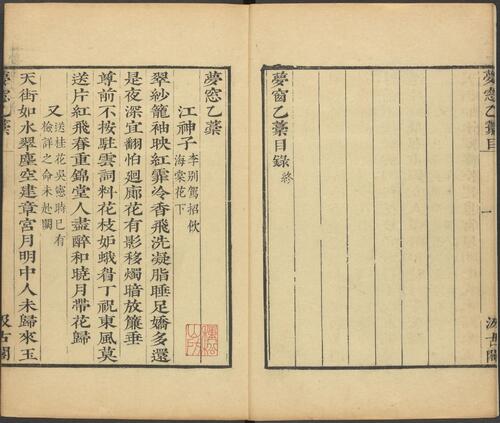 夢窗乙藁目
夢窗乙藁目錄終
一
汲古閣
夢窓乙藁
江神子 李别駕招飲海棠花下
翠紗籠袖映紅霏冷香飛洗凝脂睡足嬌多還
是夜深宜翻怕廻廊花有影移燭暗放簾垂
尊前不按駐雲詞料花枝妒蛾眉丁祝東風莫
送片紅飛春重錦堂人盡醉和曉月帶花歸
又 送桂花吳憲時已有檢詳之命未赴闕
天街如水翠塵空建章宮月明中人未歸來玉
夢窓乙藁
汲古閣